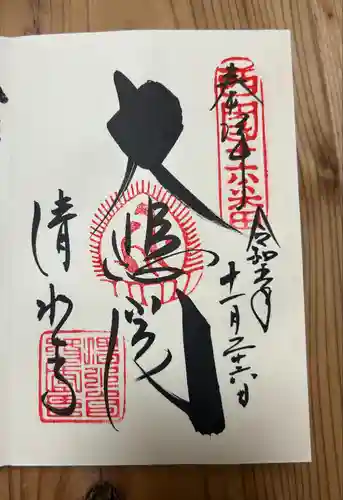 奉拝
西国十六番
令和五年
十一月二十六日
大悲閣
清水寺